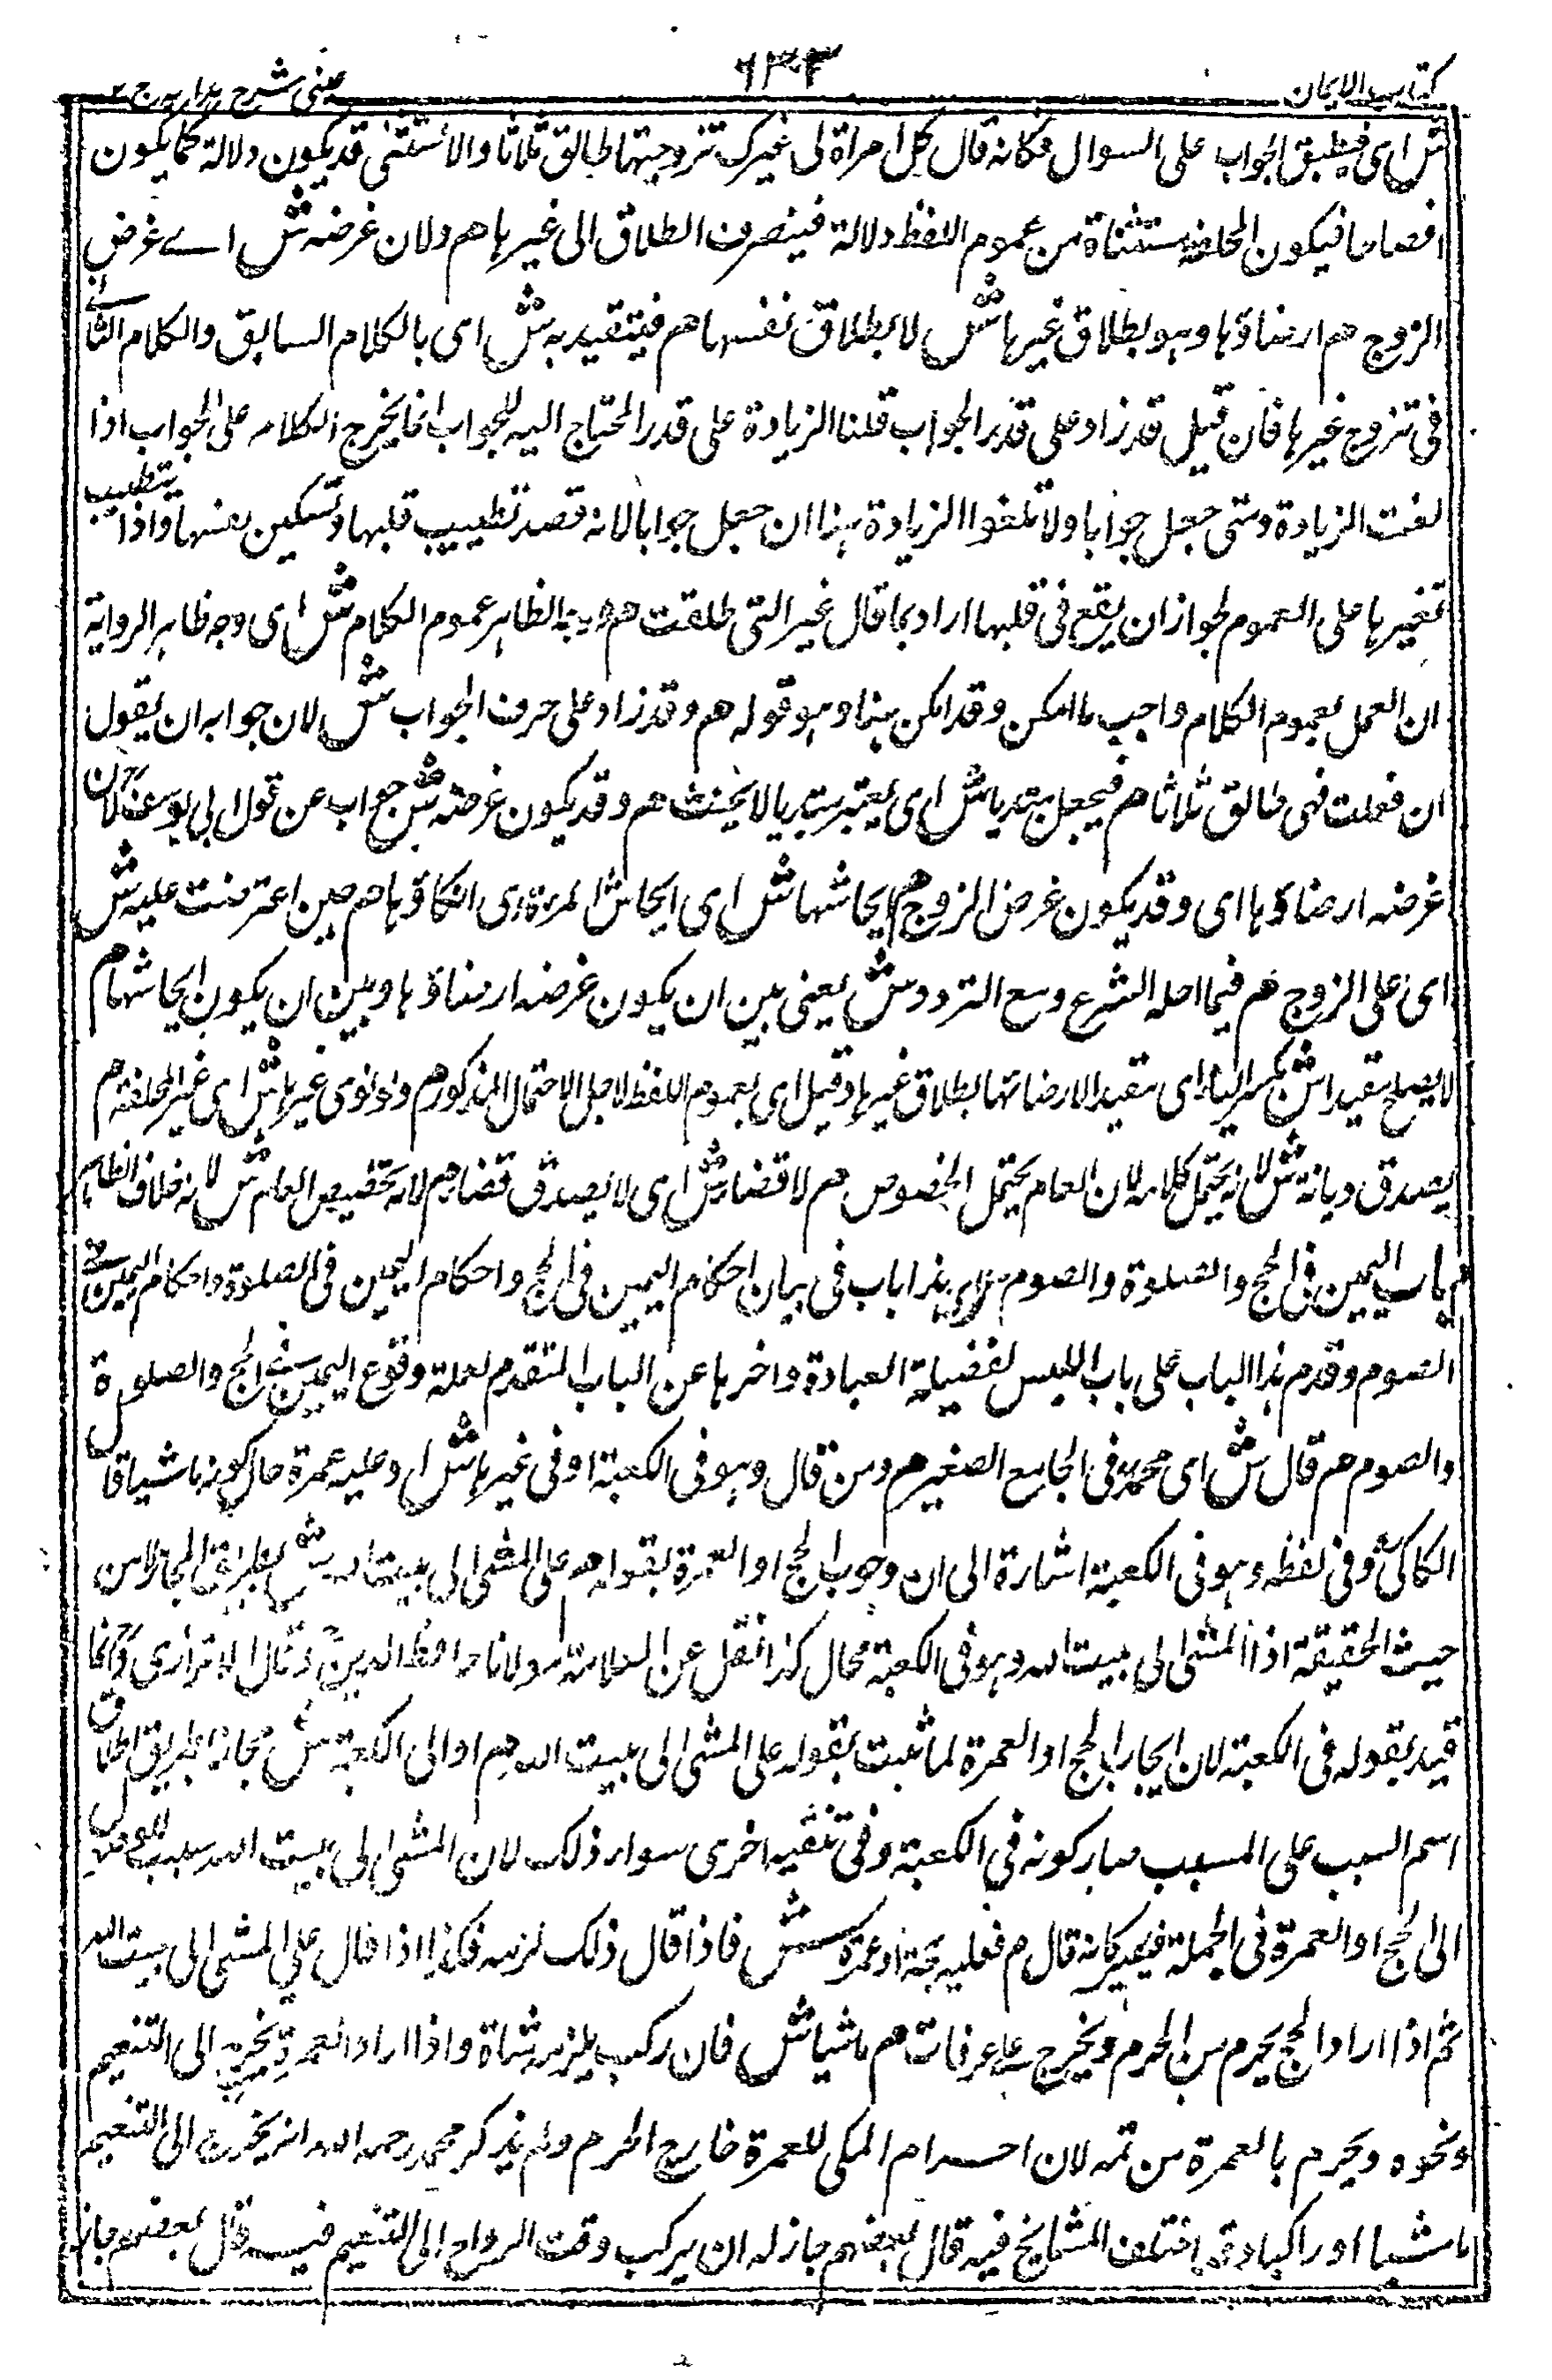 كتاب الايمان
٦٣٣
عينى شرح هدايه ج ٢
ش اى فيطبق الجواب على السوال فكانه قال كل امراة لى غيرك تزوجيتها طالق ثلاثا والاستثنى قد يكون دلالة كما يكون
افصاحا فيكون المحلفة مستثناة من عموم اللفظ دلالة فينصرف الطلاق الى غيرها هم ولان غرضه ش اے غرض
الزوج هم ارضاؤها وهو بطلاق غيرها ش لا بطلاق نفسها هم فيتقيد به ش اى بالكلام السابق والكلام الثانے
فى تزوج غيرها فان قيل قد زاد على قدر الجواب قلنا الزيادة على قدر المحتاج اليه للجواب انما يخرج الكلام على الجواب اذا
لغت الزيادة ومتى جعل جوابا ولا تلغوا الزيادة هذا ان جعل جوابا لانه قصد تطييب قلبها وتسكين نفسها واذا يتطيب
تغيرها على العموم لجواز ان يقع فى قلبها اراد بما قال غير التى طلقت هم وجه الظاهر عموم الكلام ش اى وجه ظاهر الرواية
ان العمل لعموم الكلام واجب ما امكن وقد امكن هنا وهو قوله هم وقد زاد على حرف الجواب ش لان جوابه ان يقول
ان فعلت فهى طالق ثلاثا هم فيجعل مبتديا ش اى يعتبر مبتديا لا يحنث هم وقد يكون غرضه ش جواب عن قول ابى يوسف لان
غرضه ارضاؤها اى وقد يكون غرض الزوج هم ايحاشها ش اى ايحاش المرءة اى انكاؤها هم حين اعترضت عليه ش
اى على الزوج هم فيما احله الشرع ومع التردد ش يعنى بين ان يكون غرضه ارضاؤها وبين ان يكون ايحاشها هم
لا يصلح مقيدا ش بكسر الياء اى مقيدا لارضائها بطلاق غيرها وقيل اى لعموم اللفظ لاجل الاحتمال المذكور هم ولو نوى غيرها ش اى غير المحلفة هم
يصدق ديانة ش لانه يحتمل كلامه لان العام يحتمل الخصوص هم لا قضاء ش اى لا يصدق قضاء هم لانه تخصيص العام ش لانه خلاف الظاهر
هم باب اليمين فى الحج والصلوة والصوم ش اى هذا باب فى بيان احكام اليمين فى الحج واحكام اليمين فى الصلوة واحكام اليمين فے
الصوم وقدم هذا الباب على باب اللبس لفضيلة العبادة واخرها عن الباب المتقدم لعلة وقوع اليمين فے الحج والصلوة
والصوم هم قال ش اى محمد فى الجامع الصغير هم ومن قال وهو فى الكعبة او فى غيرها ش او عليه عمرة حال كونه ماشيا قال
الكاكى وفى لفظه وهو فى الكعبة اشارة الى ان وجوب الحج او العمرة بقوله هم على المشى الى بيت الله ش بطريق المجاز لا من
حيث الحقيقة اذ المشى الى بيت الله وهو فى الكعبة محال كذا نقل عن العلامة مولانا حافظ الدين وقال الاترازى وانما
قيد بقوله فى الكعبة لان ايجاب الحج او العمرة لما ثبت بقوله على المشى الى بيت الله هم او الى الكعبة ش مجازا بطريق اطلاق
اسم السبب على المسبب صار كونه فى الكعبة وفى تنقيه اخرى سواء ذلك لان المشى الى بيت الله سبب للوصول
الى الحج او العمرة فى الجملة فيصير كانه قال هم فعليه حجة او عمرة ش فاذا قال ذلك لزمه فكذا اذا قال على المشى الى بيت الله
ثم اذا اراد الحج يحرم من الحرم ويخرج الى عرفات هم ماشيا ش فان ركب يلزمه شاة واذا اراد العمرة يخرج الى التنعيم
ونحوه ويحرم بالعمرة من ثمه لان احرام المكى للعمرة خارج الحرم ولم يذكر محمد رحمه الله انه يخرج الى التنعيم
ماشيا او راكبا وقد اختلف المشايخ فيه قال بعضهم جاز له ان يركب وقت الرواح الى التنعيم فيه قال بعضهم جاز